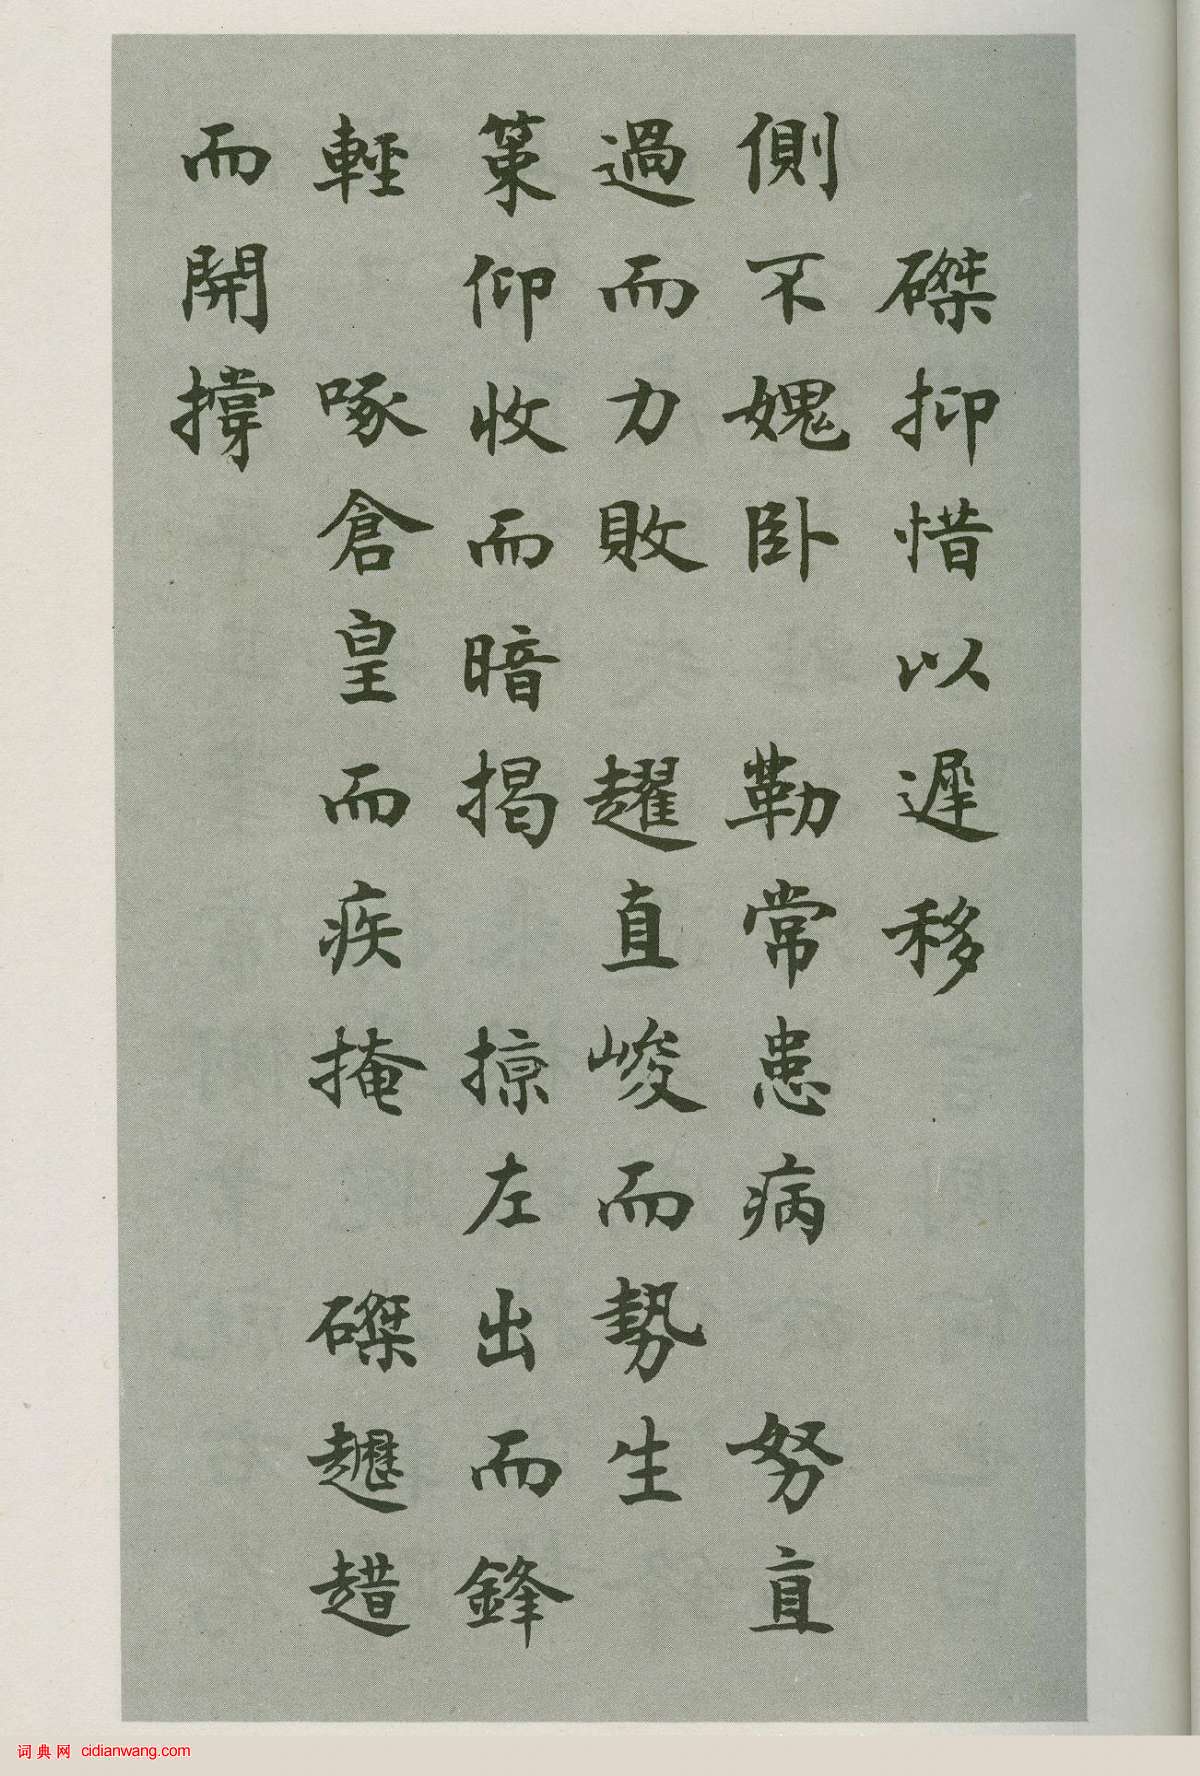 磔抑惜以遲移
側不媿臥 勒常患病 努直
過而力敗 趯直峻而勢生
策仰收而暗揭 掠左出而鋒
輕 啄倉皇而疾掩 磔趯趞
而開撐
词典网 cidianwang.com